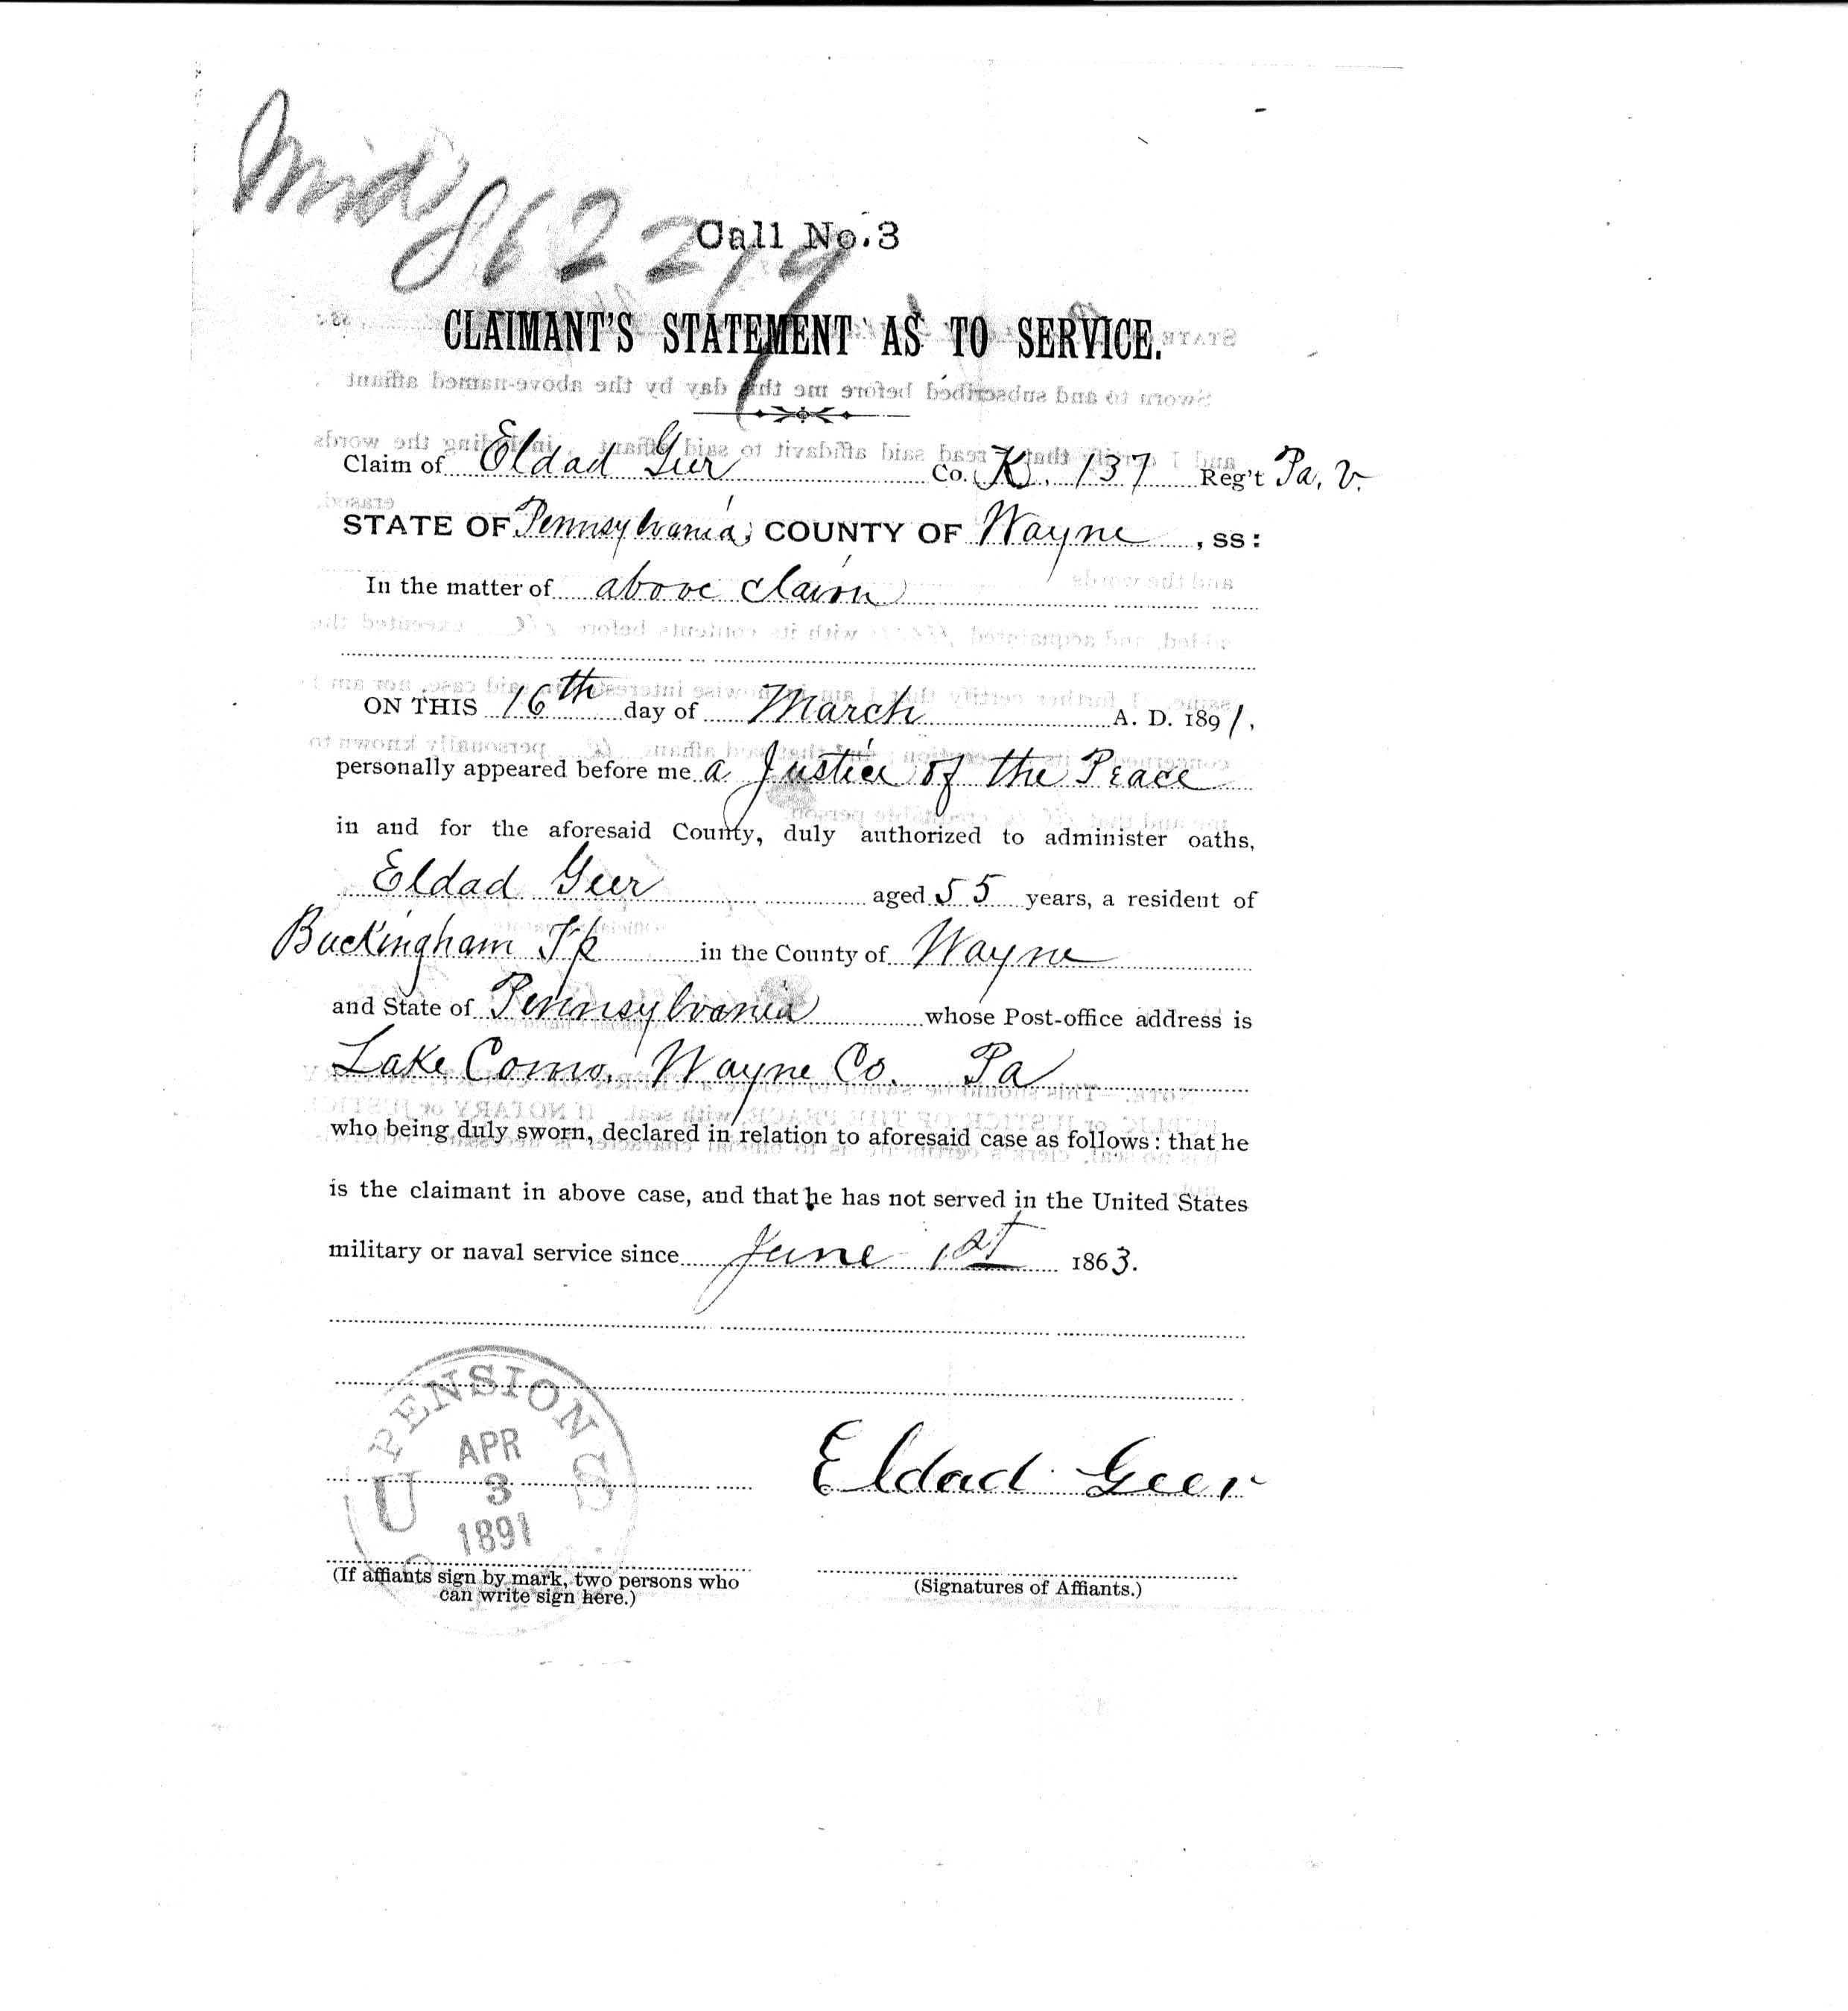 Call No. 3
CLAIMANT'S STATEMENT AS TO SERVICE.
Claim of Eldad Geer Co. K. 137 Reg't Pa. V.
STATE OF Pennsylvania, COUNTY OF Wayne, ss:
In the matter of above claim
ON THIS 16th day of March A. D. 1891.
personally appeared before me a Justice of the Peace
in and for the aforesaid County, duly authorized to administer oaths,
Eldad Geer aged 55 years, a resident of
Buckingham Tp in the County of Wayne
and State of Pennsylvania whose Post-office address is
Lake Como. Wayne Co. Pa
who being duly sworn, declared in relation to aforesaid case as follows: that he
is the claimant in above case, and that he has not served in the United States
military or naval service since June 1st 1863.
PENSION
U S
APR
3
1891
Eldad Geer
(If affiants sign by mark, two persons who
can write sign here.)
(Signatures of Affiants.)